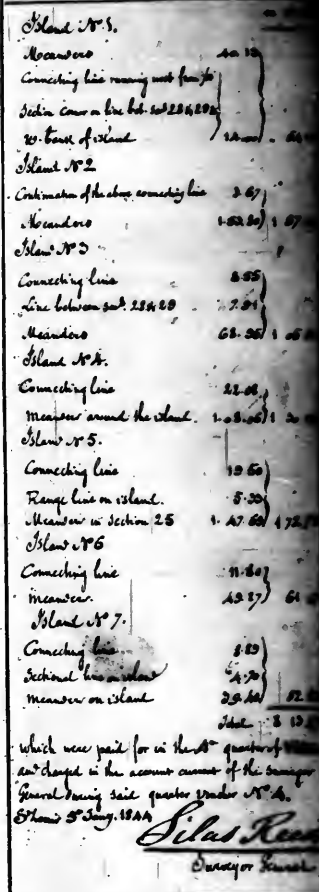 Island No 1.
Meanders 40.12
Connecting line running west from
Section Corner on line bet. sec. 28 & 29
W. bank of island
Island No 2
Continuation of the above connecting line 3.67
Meanders 1.63.80
Island No 3
Connecting line 8.55
Line between sec. 28 & 29
Meanders 68.95
Island No 4.
Connecting line 22.08
Meander around the island. 1.08.06
Island No 5.
Connecting line 19.60
Range line on island. 5.30
Meander in Section 25 1.47.69
Island No 6
Connecting line 11.80
Meander. 49.37 61
Island No 7.
Connecting line 8.23
Sectional line on island 4.70
Meander on island 39.40
Total
which were paid for in the 4th quarter of
and charged in the account current of the Surveyor
General during said quarter voucher No 4.
St Louis 5 Jany. 1844
Silas Reed
Surveyor General